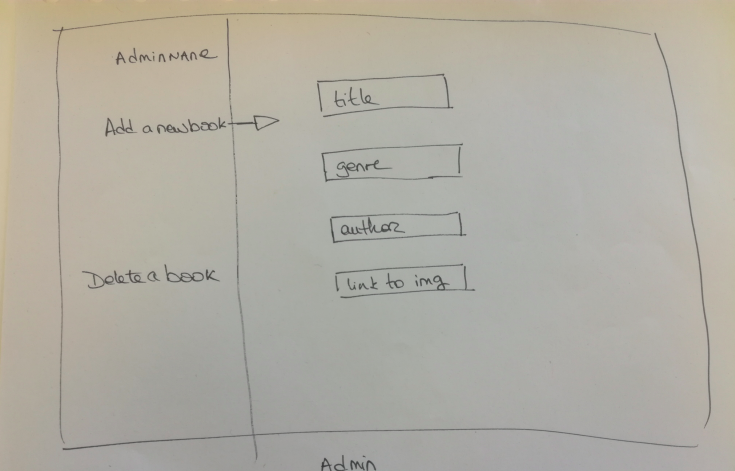 AdminName
Add a new book
Delete a book
title
genre
author
link to img
Admin